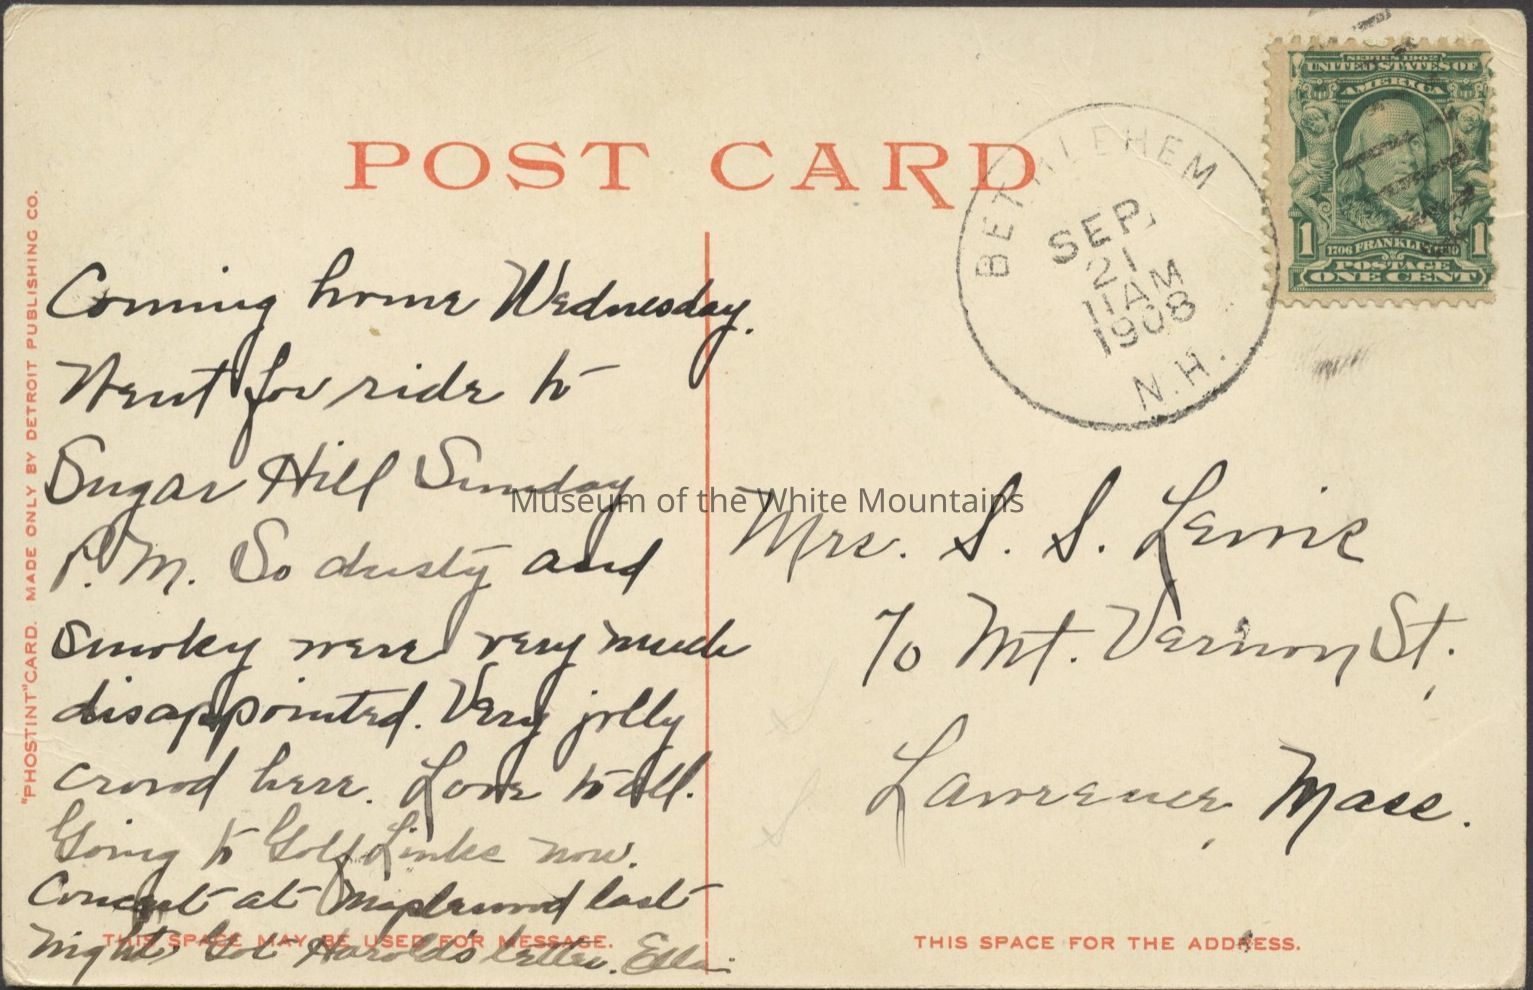 POST CARD
"PHOSTINT" CARD. MADE ONLY BY DETROIT PUBLISHING CO.
BETHLEHEM
SEP.
21
11 AM
1908
N.H.
SERIES 1902
UNITED STATES OF
AMERICA
1706 FRANKLIN 1790
POSTAGE
1 1
ONE CENT
Coming home Wednesday.
Went for ride to
Sugar Hill Sunday
P.M. So dusty and
smoky were very much
disappointed. Very jolly
crowd here. Love to all.
Going to Golf Links now.
Concert at Maplewood last
night. Got Harold's letter. Ella.
Mrs. S. S. Lewis
70 Mt. Vernon St.,
Lawrence, Mass.
THIS SPACE MAY BE USED FOR MESSAGE.
THIS SPACE FOR THE ADDRESS.
Museum of the White Mountains